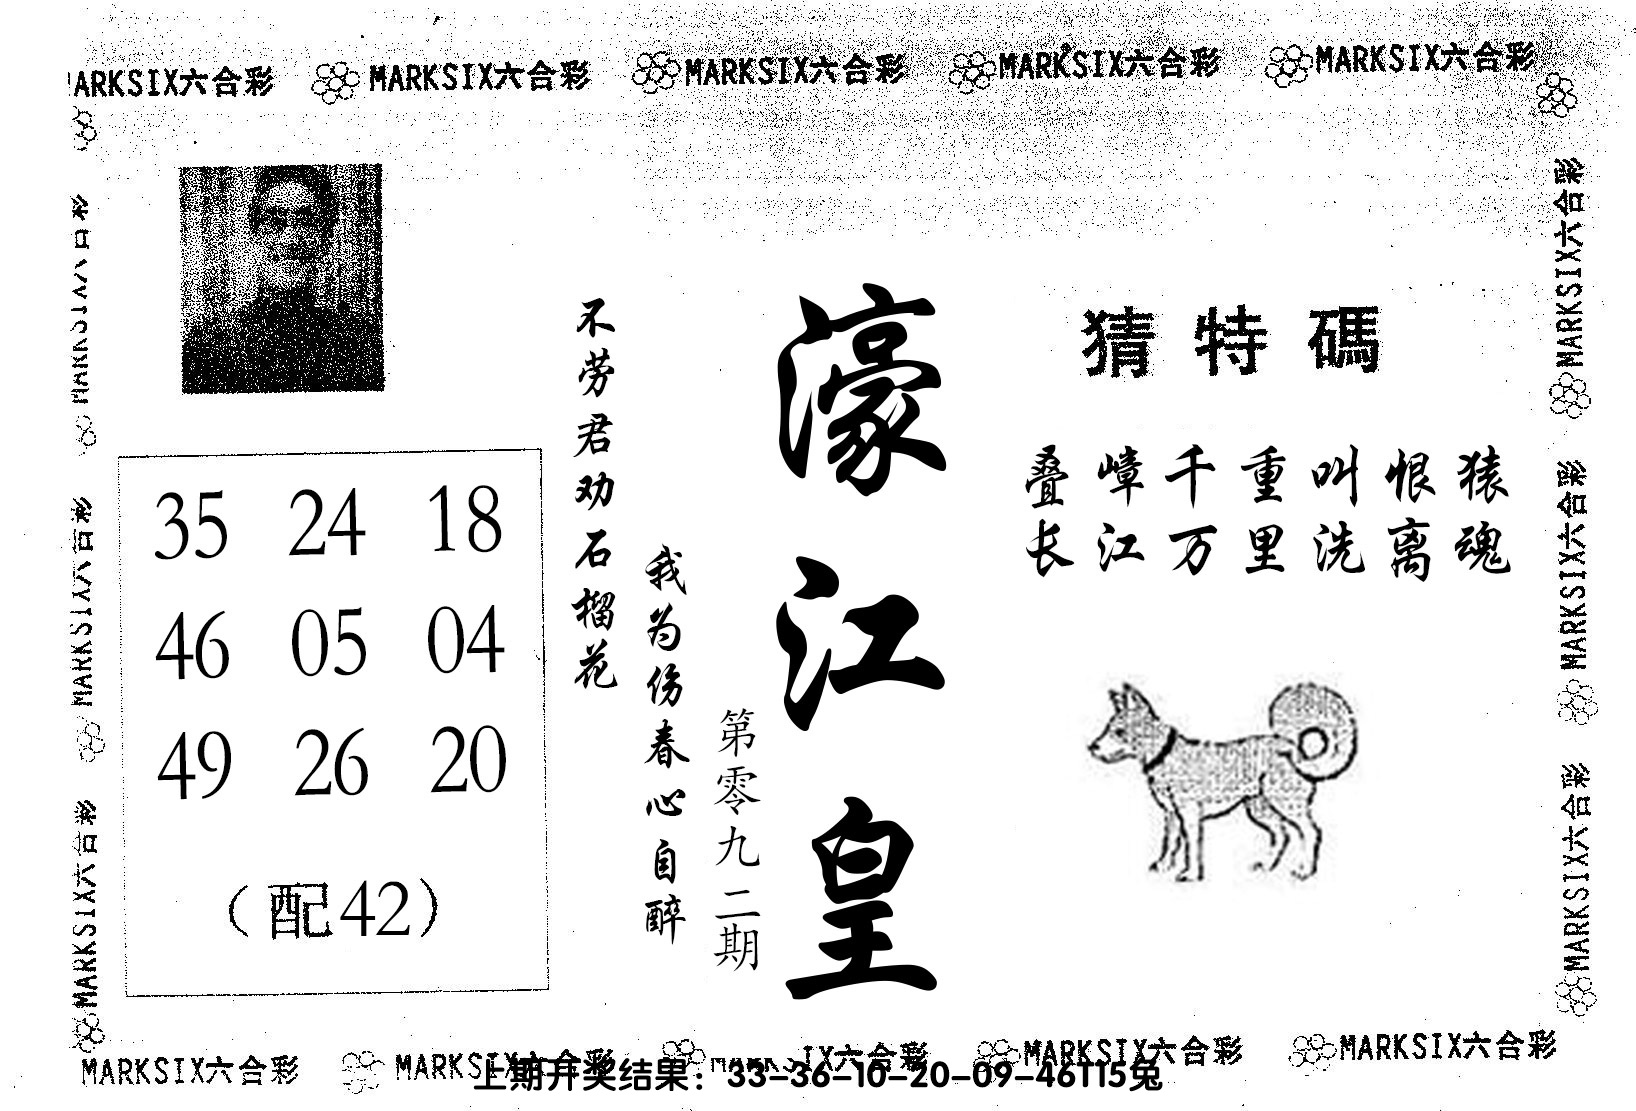 MARKSIX六合彩 MARKSIX六合彩 MARKSIX六合彩 MARKSIX六合彩 MARKSIX六合彩
MARKSIX六合彩
MARKSIX六合彩
MARKSIX六合彩
MARKSIX六合彩
MARKSIX六合彩
MARKSIX六合彩
35 24 18
46 05 04
49 26 20
（配42）
不劳君劝石榴花
我为伤春心自醉
第零九二期
濠江皇
猜特碼
叠嶂千重叫恨猿
长江万里洗离魂
MARKSIX六合彩 MARKSIX六合彩 MARKSIX六合彩 MARKSIX六合彩 MARKSIX六合彩
上期开奖结果：33-36-10-20-09-46T15兔